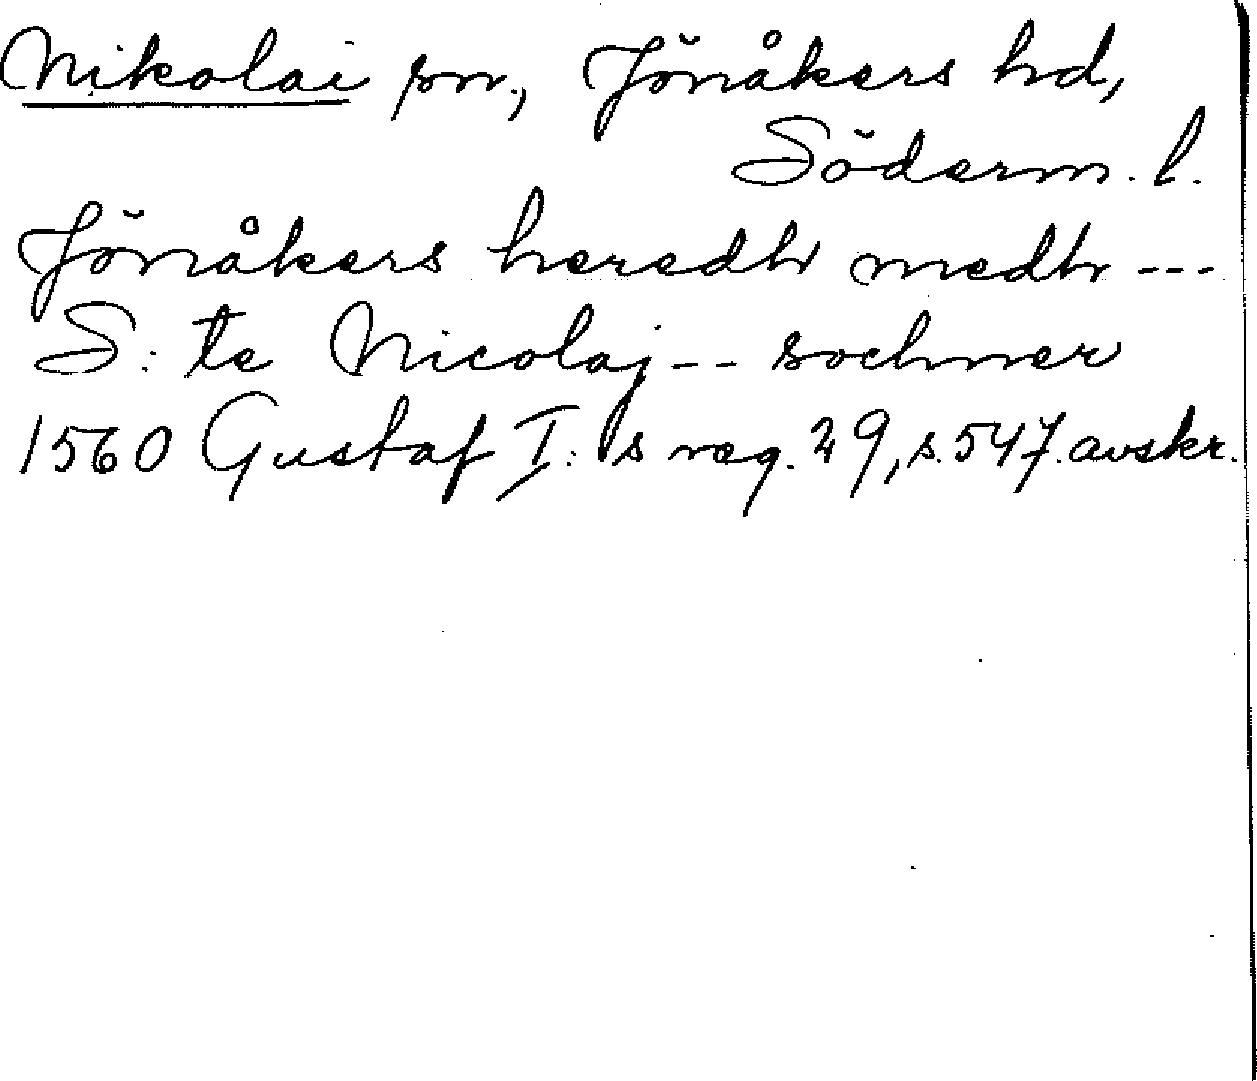 Nikolai sn., Jönåkers hd,
Söderm. l.
Jönåkers heredh medh ---
S: te Nicolaj -- sochner
1560 Gustaf I: s reg. 29, s. 547. avskr.